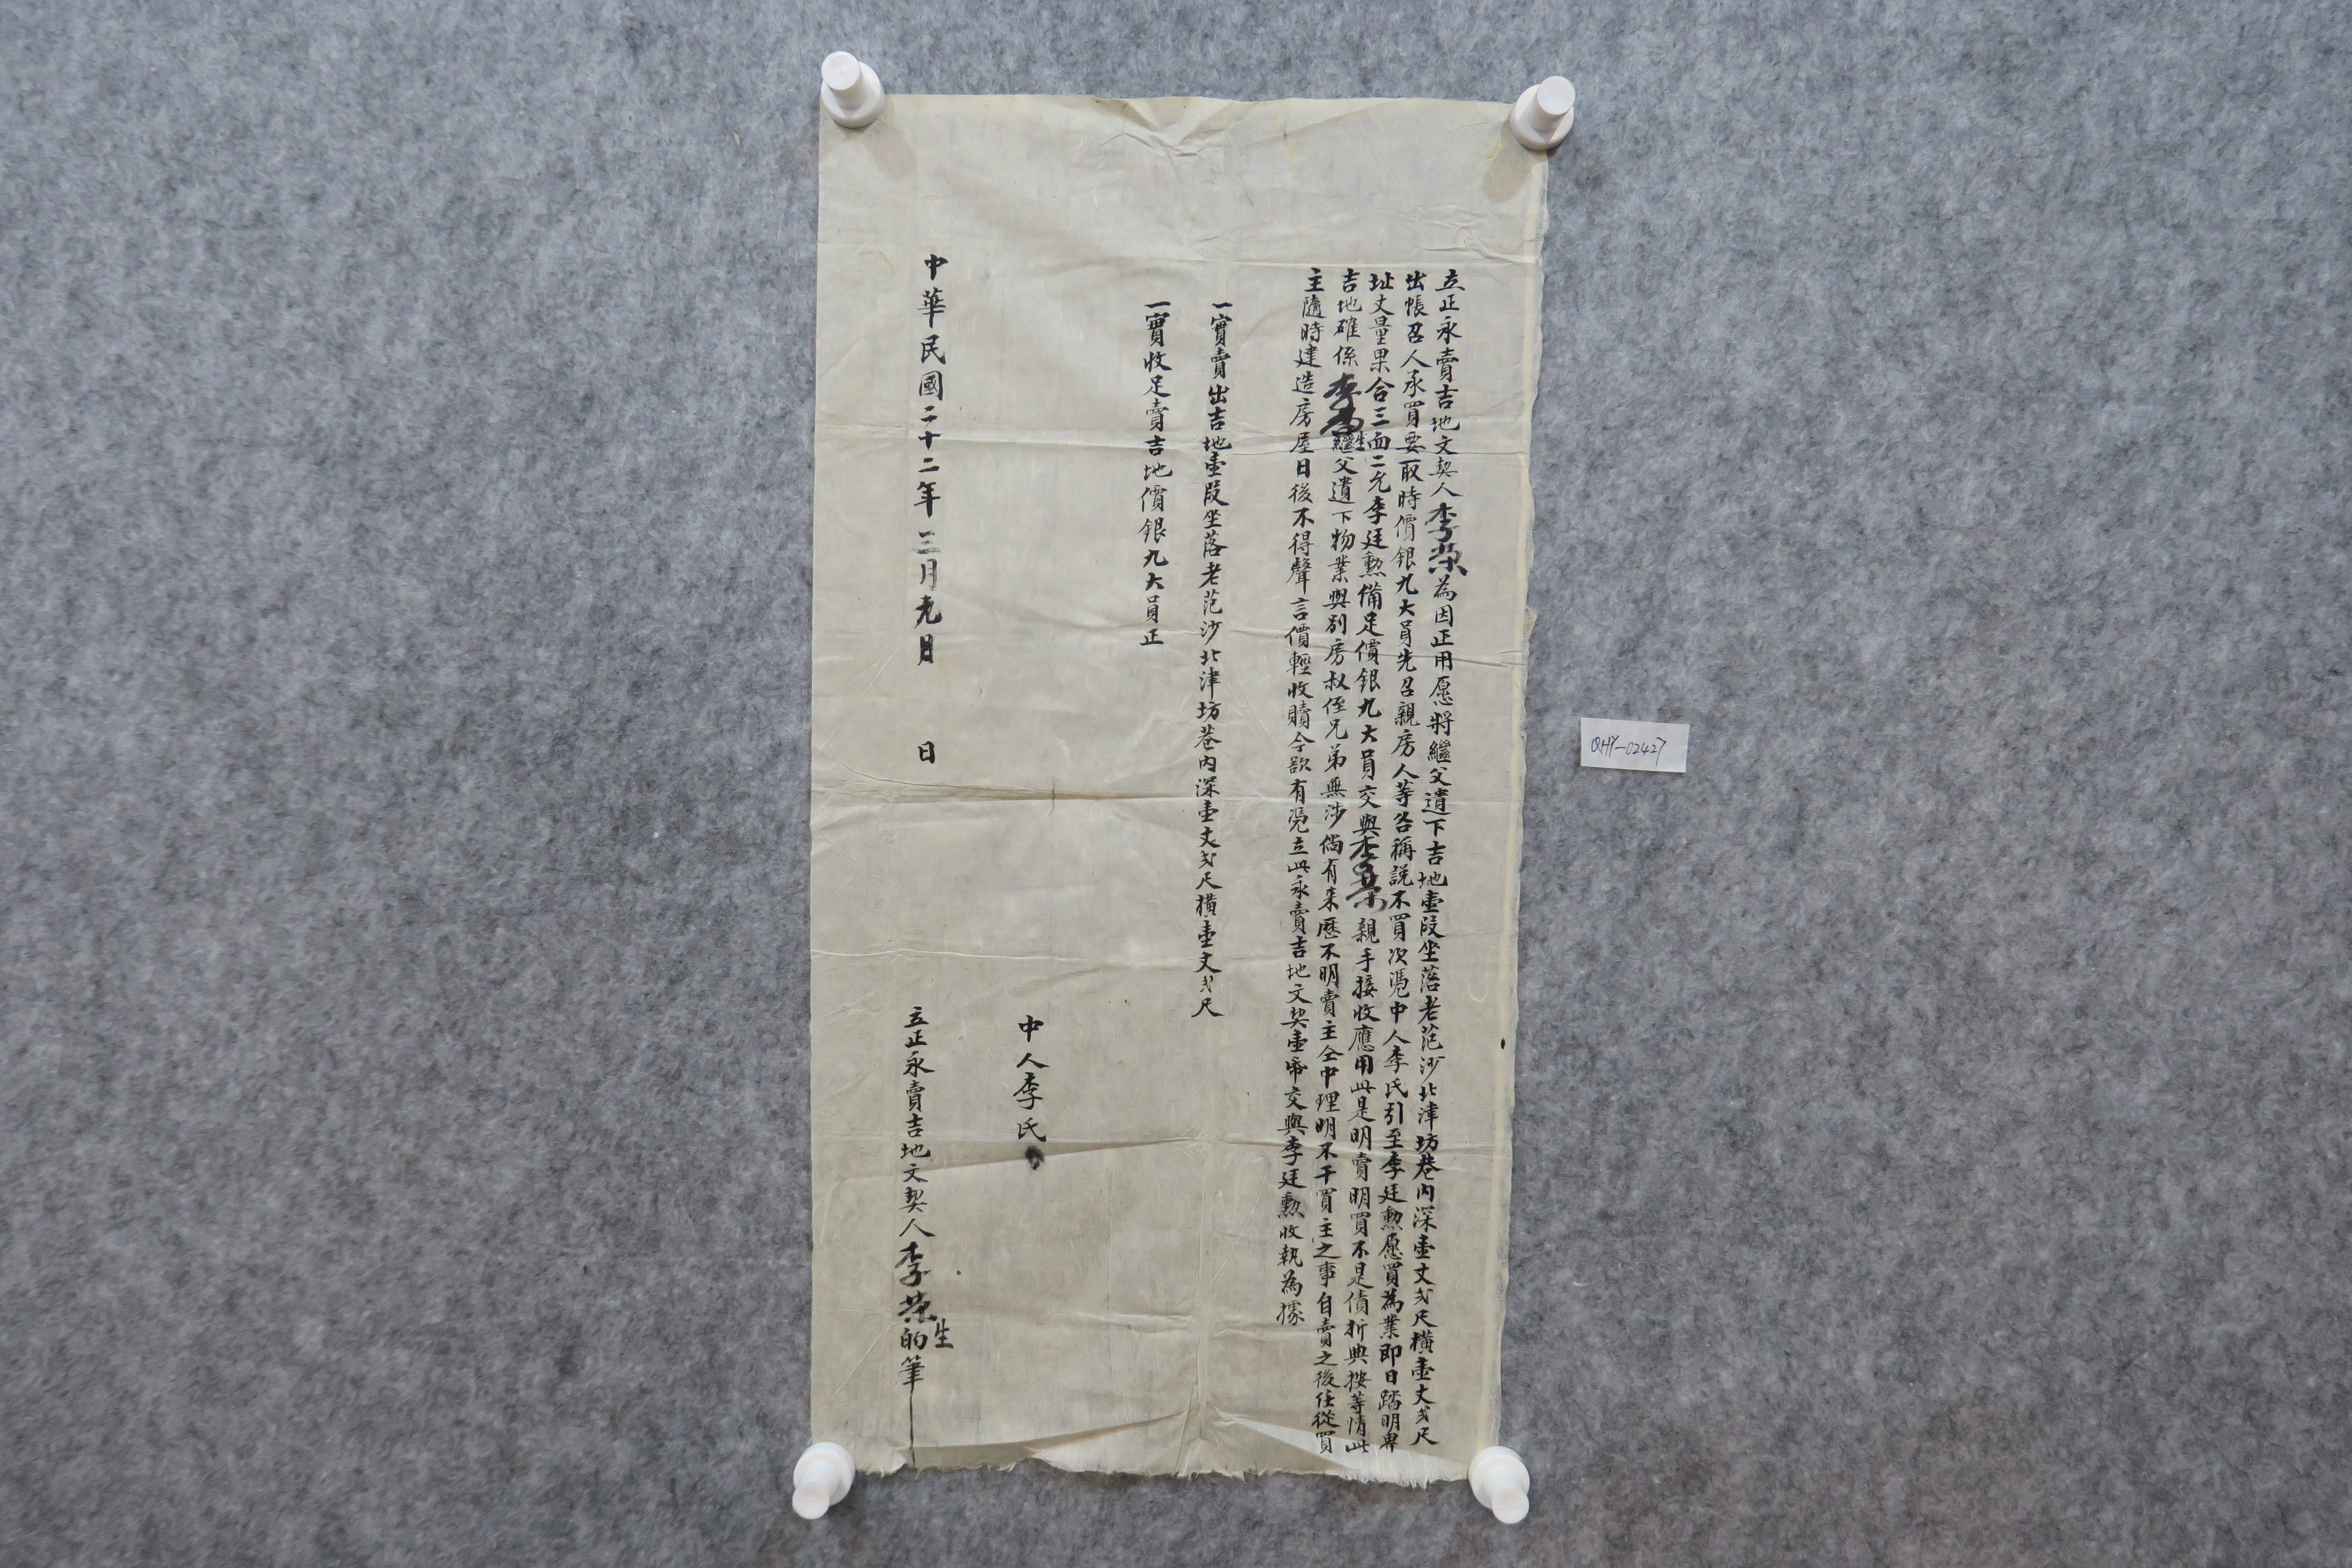 立正永賣吉地文契人李荣為因正用愿將繼父遺下吉地壹段坐落老范沙北津坊巷內深壹丈弍尺橫壹丈弍尺
出帳召人承買要取時價銀九大員先召親房人等各稱説不買次憑中人李氏引至李廷勲愿買為業即日踏明界
址丈量果合三面二允李廷勲備足價銀九大員交與李荣親手接收應用此是明賣明買不是債折典按等情此
吉地確係李荣生繼父遺下物業與别房叔侄兄弟無涉倘有来歷不明賣主仝中理明不干買主之事自賣之後任從買
主隨時建造房屋日後不得聲言價輕收贖今欲有凭立此永賣吉地文契壹帋交與李廷勲收執為據
一實賣出吉地壹段坐落老范沙北津坊巷內深壹丈弍尺橫壹丈弍尺
一實收足賣吉地價銀九大員正
中人李氏
中華民國二十二年三月 日 日
立正永賣吉地文契人李荣生的筆
QHY-02427